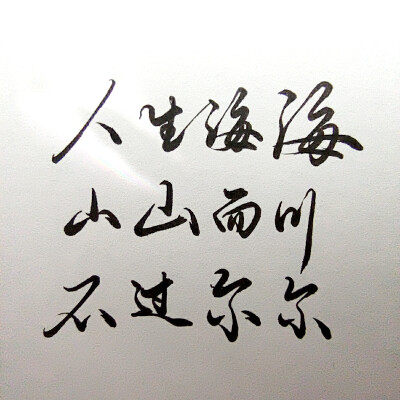 人生海海
山山而川
不过尔尔